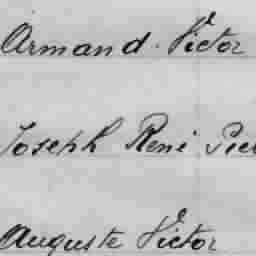 Armand Victor
Joseph René
Auguste Victor